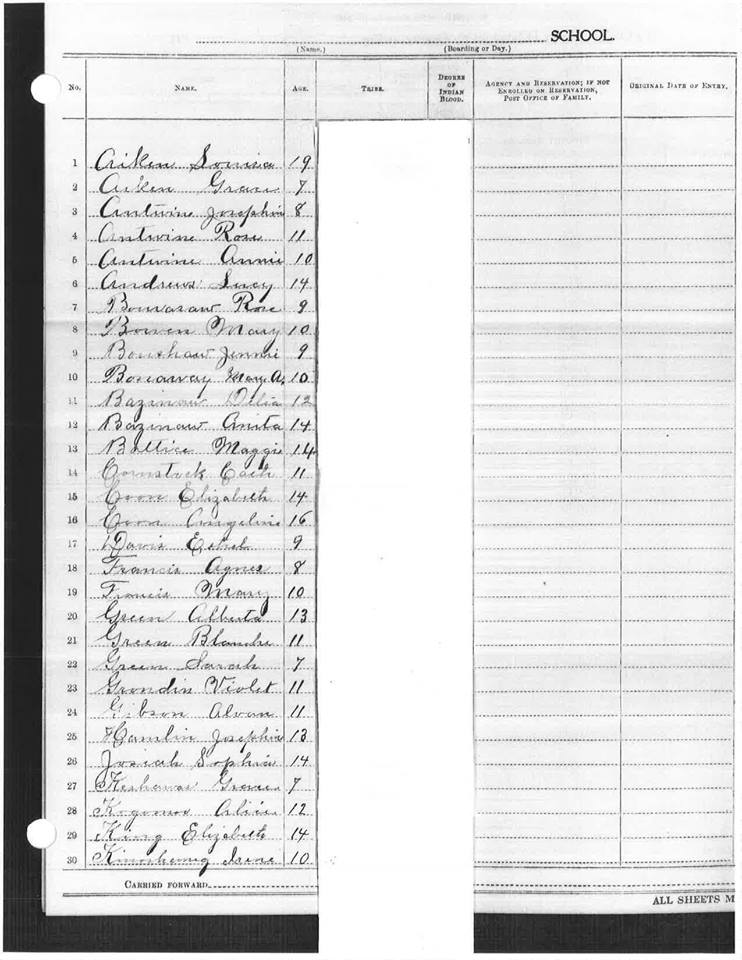 SCHOOL.
(Name.) (Boarding or Day.)
No. NAME. AGE. TRIBE. DEGREE OF INDIAN BLOOD. AGENCY AND RESERVATION; IF NOT ENROLLED ON RESERVATION, POST OFFICE OF FAMILY. ORIGINAL DATE OF ENTRY.
1 Aiken Louisa 19
2 Aiken Grace 7
3 Antwine Josephine 8
4 Antwine Rose 11
5 Antwine Annie 10
6 Andrews Lucy 14
7 Rose 9
8 Bowen Mary 10
9 Bonshaw Jennie 9
10 Mary A. 10
11 Bazinaw Delia 12
12 Bazinaw Anita 14
13 Battice Maggie 14
14 Comstock 11
15 Coon Elizabeth 14
16 Coon Angeline 16
17 Davis Ethel 9
18 Francis Agnes 8
19 Francis Mary 10
20 Green Alberta 13
21 Green Blanche 11
22 Green Sarah 7
23 Grondin Violet 11
24 Gibson 11
25 Hamlin Josephine 13
26 Josiah Sophia 14
27 Grace 7
28 12
29 King Elizabeth 14
30 10
CARRIED FORWARD
ALL SHEETS M